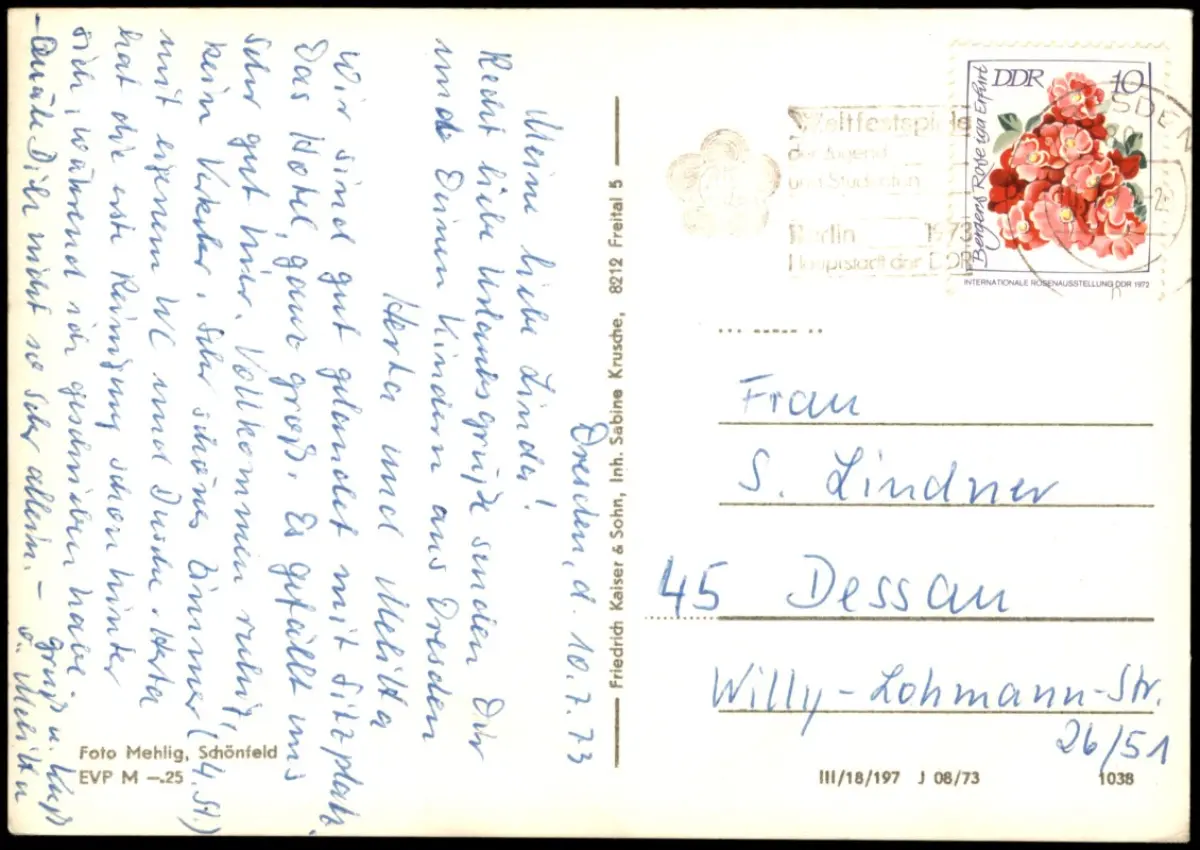 Dresden, d. 10.7.73
Meine liebe Linda!
Recht liebe Urlaubsgrüße senden Dir
und Deinen Kindern aus Dresden
Herta und Melitta
Wir sind gut gelandet mit Sitzplatz.
Das Hotel, ganz groß. Es gefällt uns
sehr gut hier. Vollkommen ruhig,
kein Verkehr. Sehr schönes Zimmer (4. St.)
mit eigenem WC und Dusche. Herta
hat die erste Reinigung schon hinter
sich, während ich geschrieben habe.
– Quäle Dich nicht so sehr allein. –
Gruß u. Kuß
Melitta
Foto Mehlig, Schönfeld
EVP M –.25
Friedrich Kaiser & Sohn, Inh. Sabine Krusche, 8212 Freital 5
Weltfestspiele
der Jugend
und Studenten
Berlin 1973
Hauptstadt der DDR
DDR 10
Bergers Rose iga Erfurt
INTERNATIONALE ROSENAUSSTELLUNG DDR 1972
Frau
S. Lindner
45 Dessau
Willy-Lohmann-Str.
26/51
III/18/197 J 08/73
1038